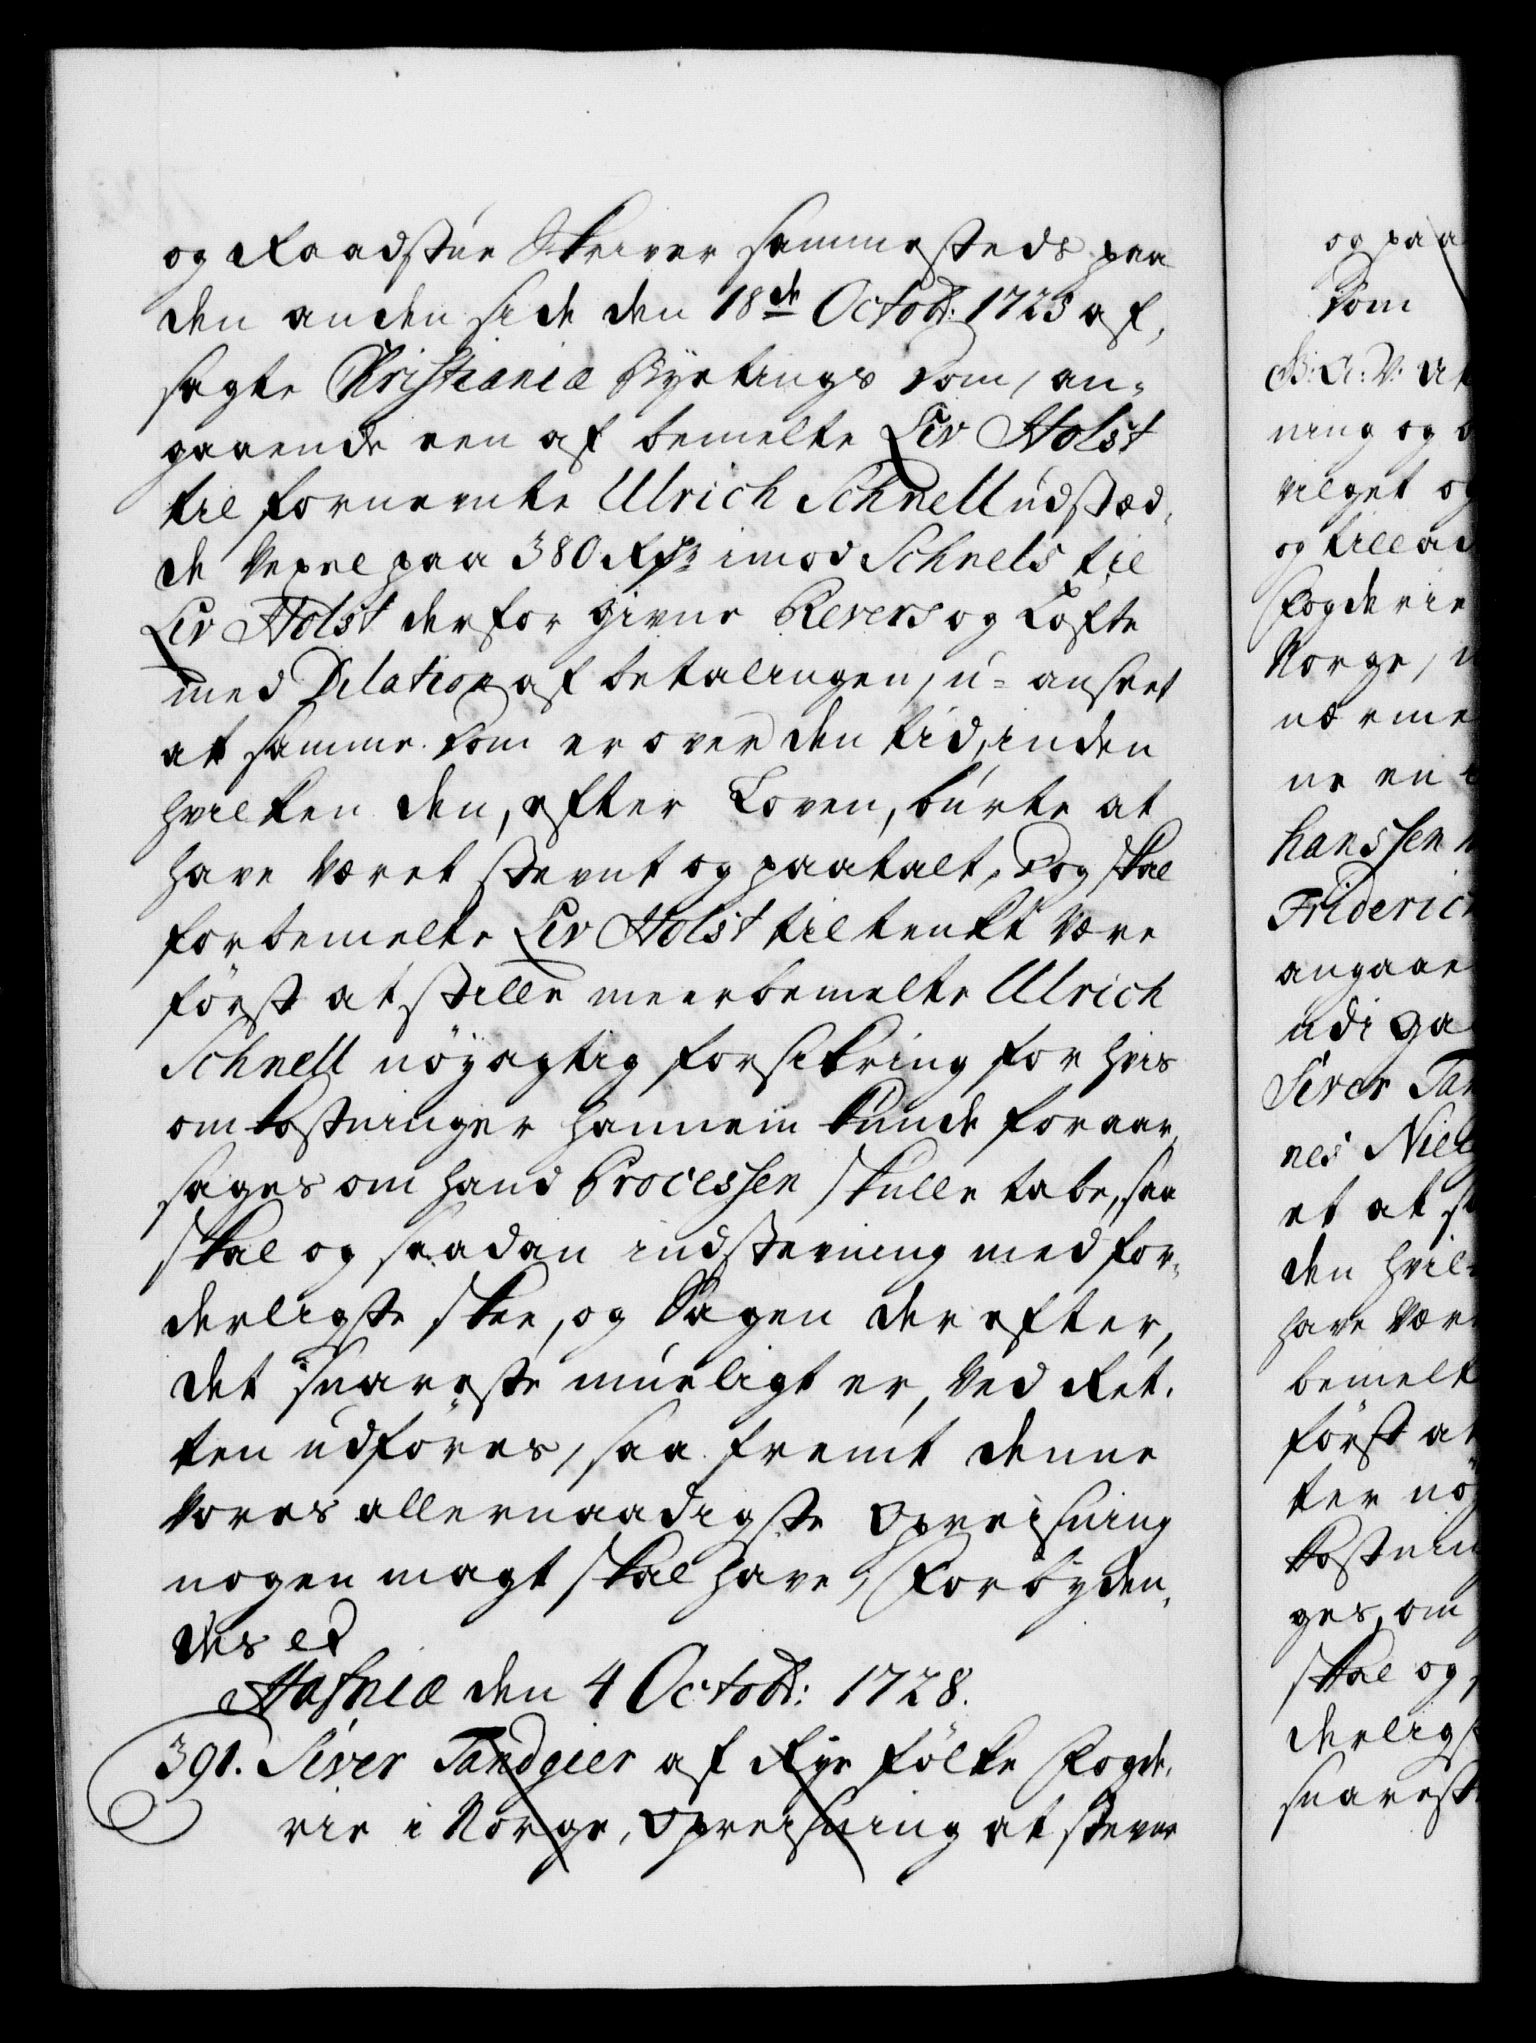 og Raadstue Skriver sammesteds paa
den anden side den 18de Octobr: 1725 af,
sagte Christiania Byetings Dom, an-
gaaende een af bemelte Liv Holst
til fornevnte Ulrich Schnell udstæd,
de Vexel paa 380 Rdr imod Schnels til
Liv Holst derfor givne Revers og Løfte
med Dilation af betalingen, u-anseet
at samme Dom er over den tid, inden
hvilken den, efter Loven, burte at
have været stevnt og paatalt, Dog skal
forbemelte Liv Holst tiltenkt være
först at stille meerbemelte Ulrich
Schnell nöyagtig forsikring for hvis
omkostninger hannem kunde foraar,
sages om hand Processen skulle tabe, saa
skal og saadan indstevning med for-
derligste skee, og Sagen derefter,
det snareste mueligt er, ved Ret,
ten udföres, saa fremt denne
Vores allernaadigste Opreisning
nogen magt skal have, Forbyden,
des etc
Hafniæ den 4 Octobr: 1728.
391. Siver Tandgier af Rye fölke Fogde,
rie i Norge, Opreisning at stevne
og paa
Dom
G: A: V: At
ning og b
vilget og
og tillad
Fogderie
Norge,
nærme
ne en
hanssen
Friderich
angaae
udi ga
Siver Tan
nes Niel
et at st
den hvil-
have vær
bemelt
först at
ter nöy
kostnin
ges, om
skal og
derligs
snarest